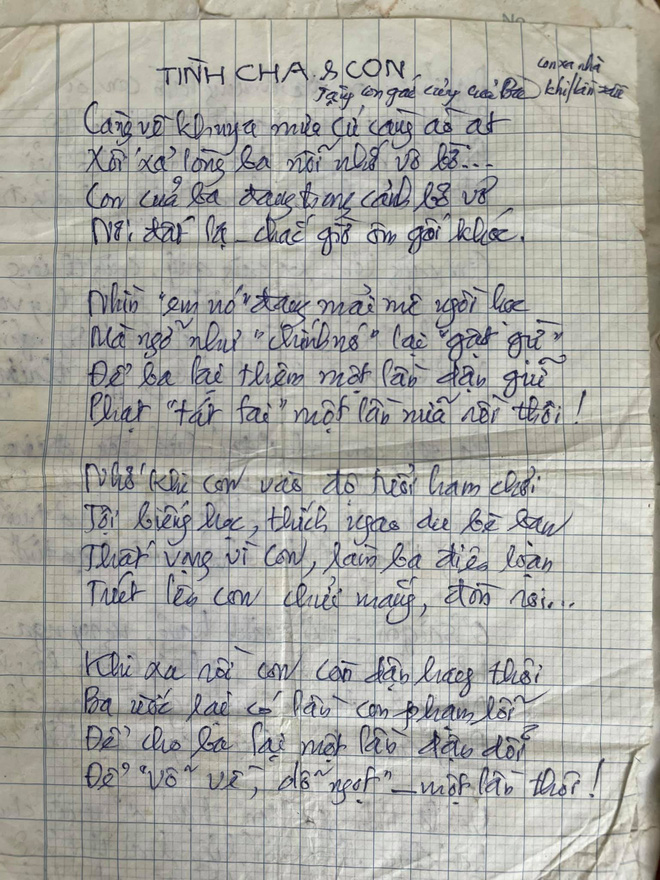 TÌNH CHA & CON
Tặng con gái cưng của Ba
con xa nhà
khi lần đầu
Càng về khuya mưa cứ càng ào ạt
Xót xa lòng ba nỗi nhớ vô bờ...
Con của ba đang trong cảnh bơ vơ
Nơi đất lạ _ chắc giờ ôm gối khóc.
Nhìn "em nó" đang mải mê ngồi học
Mà ngỡ như "chính nó" lại "gật gù"
Để ba lại thêm một lần dận giữ
Phạt "tát tai" một lần nữa rồi thôi!
Nhớ khi con vào độ tuổi ham chơi
Tội biếng học, thích ngao du bè bạn
Thất vọng vì con, làm ba điên loạn
Trút lên con chửi mắng, đòn roi...
Khi xa rồi con còn dận hay thôi
Ba ước lại có lần con phạm lỗi
Để cho ba lại một lần dận dỗi
Để "vỗ về, dỗ ngọt" _ một lần thôi!